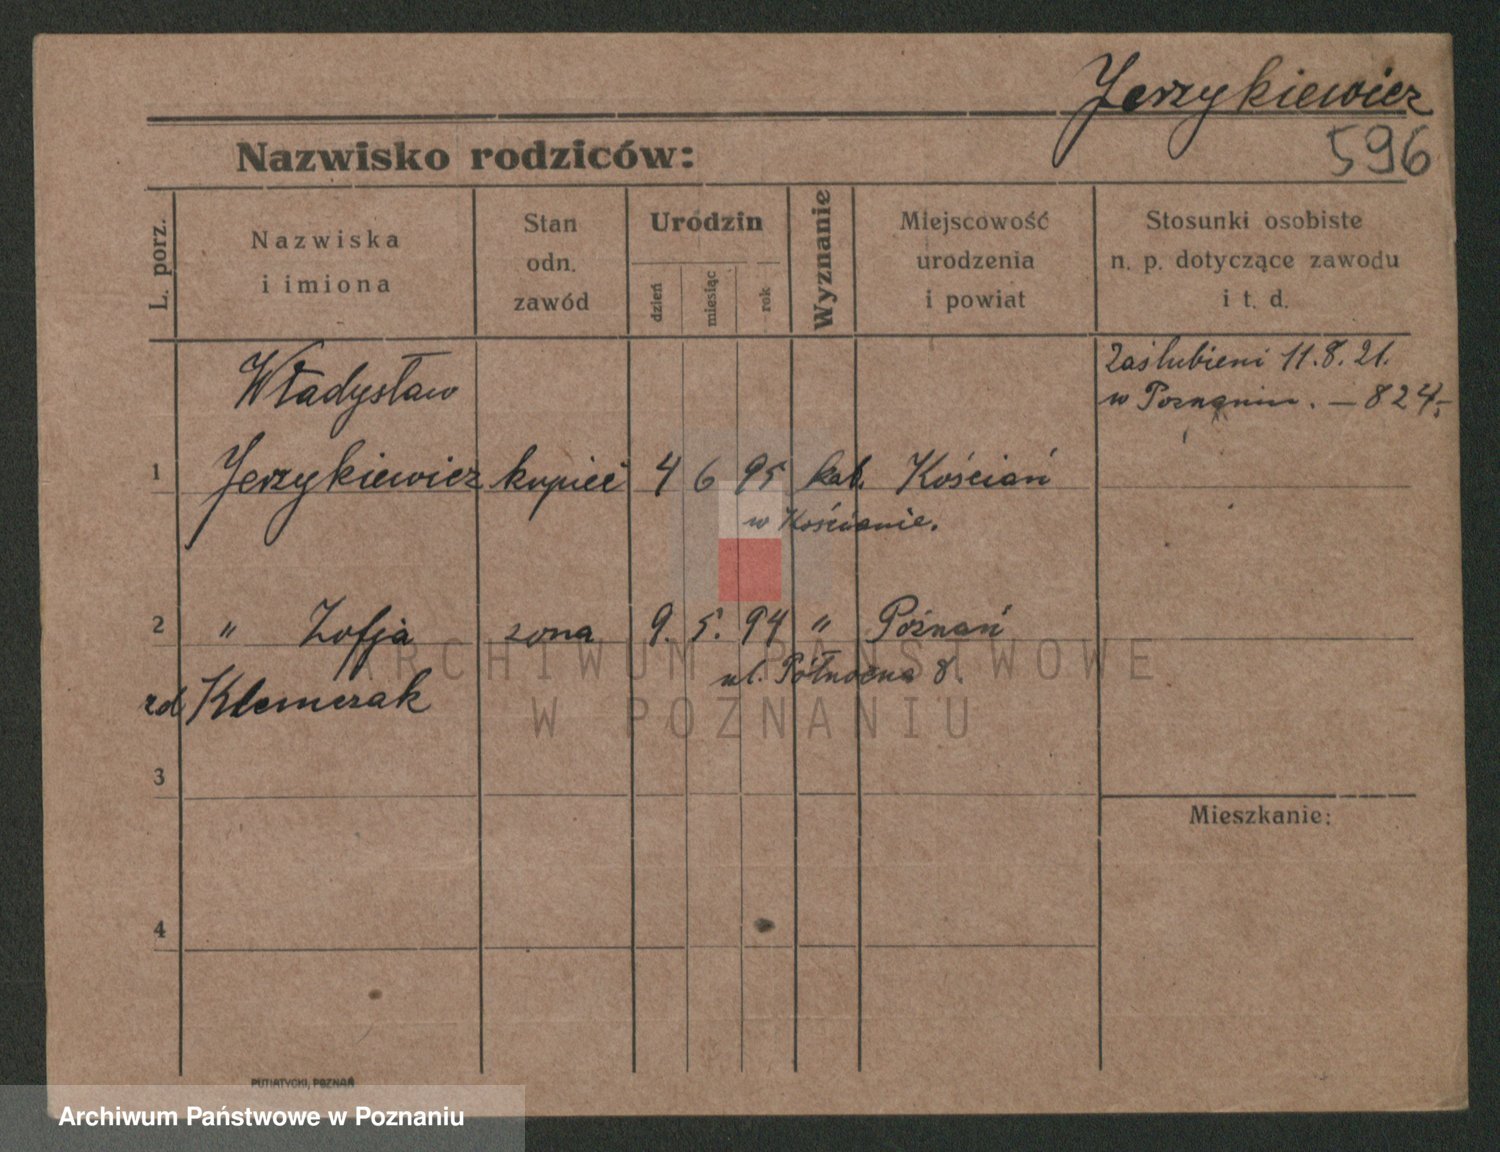 Jerzykiewicz
596
Nazwisko rodziców:
L. porz.
Nazwiska
i imiona
Stan
odn.
zawód
Urodzin
dzień
miesiąc
rok
Wyznanie
Miejscowość
urodzenia
i powiat
Stosunki osobiste
n. p. dotyczące zawodu
i t. d.
Zaślubieni 11.8.21.
w Poznaniu. — 824,-
Władysław
1 Jerzykiewicz kupiec 4 6 95 kat. Kościań
w Kościanie.
2 " Zofja żona 9. 5. 94 " Poznań
ul. Północna 8.
zd Klemczak
3
Mieszkanie:
4
PUTIATYCKI, POZNAŃ
ARCHIWUM PAŃSTWOWE
W POZNANIU
Archiwum Państwowe w Poznaniu